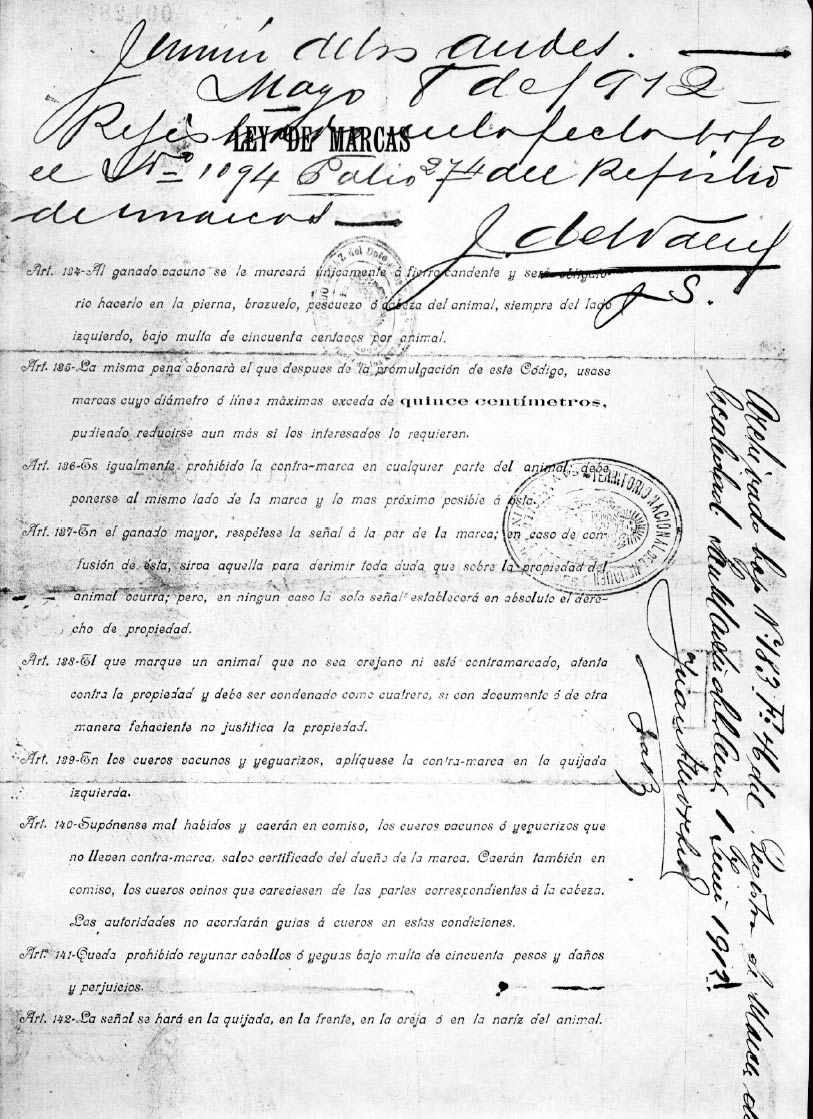 Junin de los Andes.
Mayo 8 de 1912
LEY DE MARCAS
el No 1094 Folio 274 del Registro
de marcas
J. del Valle
J. S.
Art. 134-Al ganado vacuno se le marcará únicamente á fierro candente y será obligato-
rio hacerlo en la pierna, brazuelo, pescuezo ó cabeza del animal, siempre del lado
izquierdo, bajo multa de cincuenta centavos por animal.
Art. 135-La misma pena abonará el que despues de la promulgación de este Código, usase
marcas cuyo diámetro ó línea màximas exceda de quince centímetros,
pudiendo reducirse aun más si los interesados lo requieren.
Art. 136-Es igualmente prohibido la contra-marca en cualquier parte del animal; debe
ponerse al mismo lado de la marca y lo mas próximo posible á ésta.
TERRITORIO NACIONAL DEL NEUQUEN
Art. 137-En el ganado mayor, respétese la señal á la par de la marca; en caso de con-
fusión de ésta, sirva aquella para derimir toda duda que sobre la propiedad del
animal ocurra; pero, en ningun caso la sola señal establecerá en absoluto el dere-
cho de propiedad.
Art. 138-El que marque un animal que no sea orejano ni esté contramarcado, atenta
contra la propiedad y debe ser condenado como cuatrero, si con documento ó de otra
manera fehaciente no justifica la propiedad.
Art. 139-En los cueros vacunos y yeguarizos, aplíquese la contra-marca en la quijada
izquierda.
Art. 140-Supónense mal habidos y caerán en comiso, los cueros vacunos ó yeguarizos que
no lleven contra-marca, salvo certificado del dueño de la marca. Caerán también en
comiso, los cueros ovinos que careciesen de las partes correspondientes á la cabeza.
Las autoridades no acordarán guias á cueros en estas condiciones.
Art. 141-Queda prohibido reyunar caballos ó yeguas bajo multa de cincuenta pesos y daños
y perjuicios.
Art. 142-La señal se hará en la quijada, en la frente, en la oreja ó en la naríz del animal.
Archivado bajo No. 183 Fo. 46 del Registro de Marca
1912
Juan